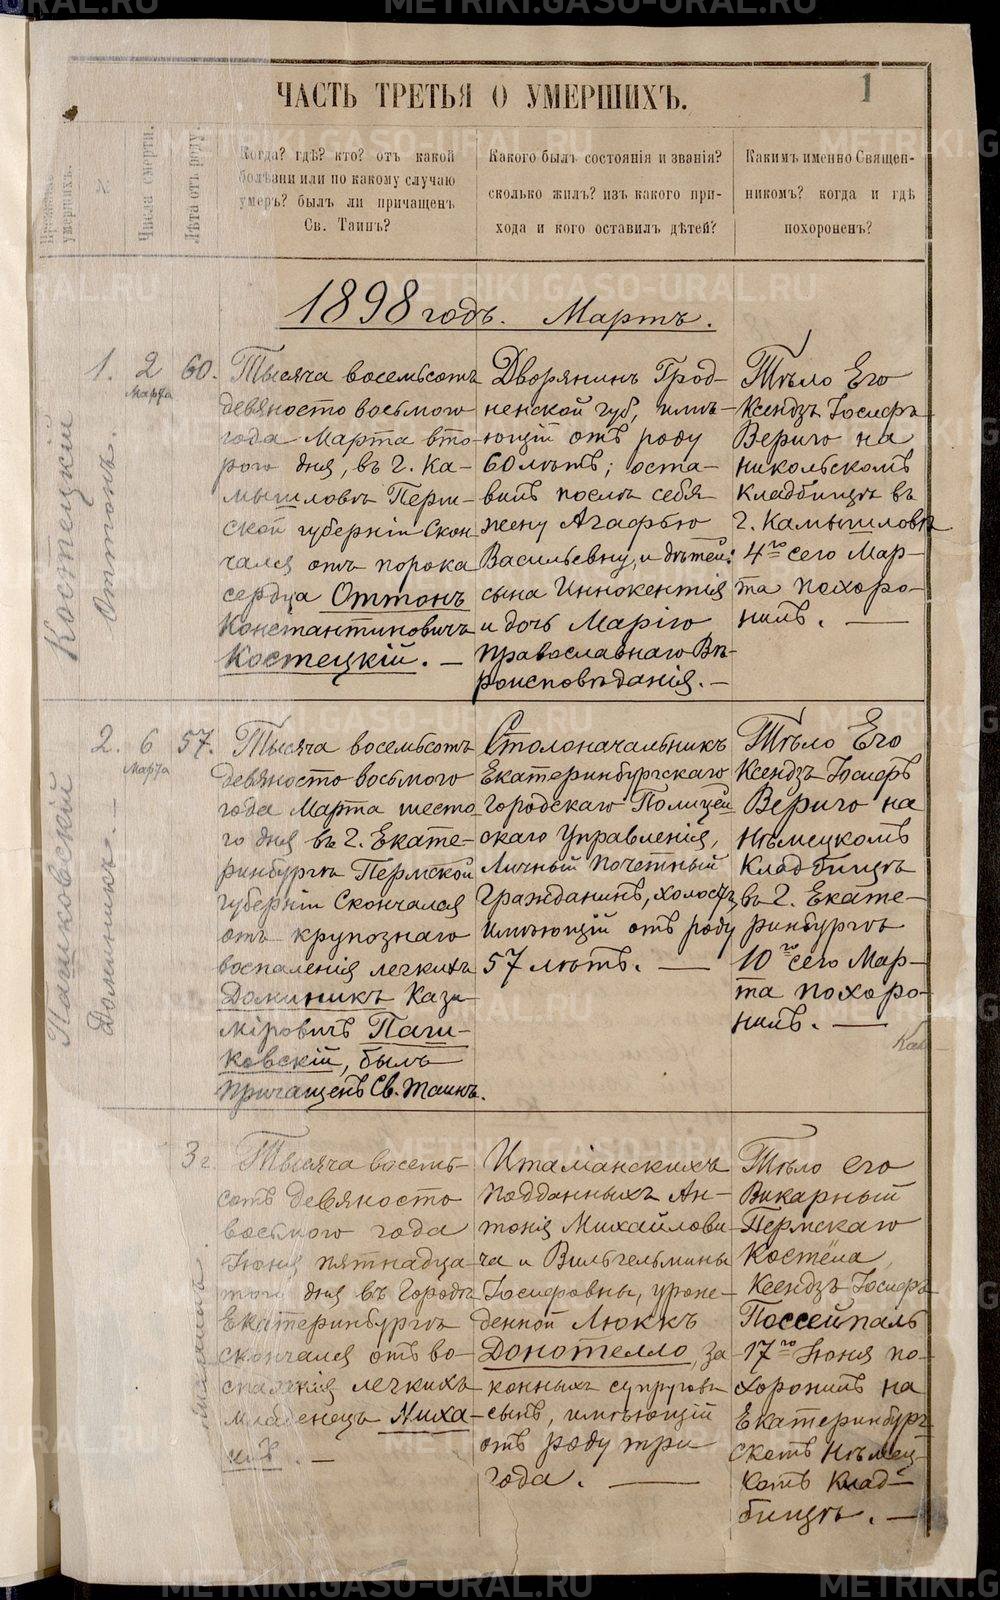 ЧАСТЬ ТРЕТЬЯ О УМЕРШИХЪ.
1
умершихъ.
Числа смерти.
Лѣта отъ роду.
Когда? гдѣ? кто? отъ какой
болѣзни или по какому случаю
умеръ? былъ ли причащенъ
Св. Таинъ?
Какого былъ состоянія и званія?
сколько жилъ? изъ какого при-
хода и кого оставилъ дѣтей?
Какимъ именно Священ-
никомъ? когда и гдѣ
похороненъ?
1898 годъ. Мартъ.
Костецкій
Оттонъ.
1.
2
Марта
60.
Тысяча восемьсотъ
девяносто восьмого
года Марта вто-
рого дня, въ г. Ка-
мышловѣ Перм-
ской губерніи скон
чался отъ порока
сердца Оттонъ
Константиновичъ
Костецкій. —
Дворянинъ Грод-
ненской губ, имѣ-
ющій отъ роду
60 лѣтъ; оста-
вилъ послѣ себя
жену Агафью
Васильевну, и дѣтей:
сына Иннокентія
и дочь Марію
Православнаго Вѣ-
роисповѣданія. —
Тѣло Его
Ксендзъ Іосифъ
Веричо на
никольскомъ
Кладбищѣ въ
г. Камышловѣ
4го сего Мар-
та похоро-
нилъ. —
Пашковскій
Доминикъ. —
2.
6
Марта
57.
Тысяча восемьсотъ
девяносто восьмого
года Марта шесто
го дня въ г. Екате-
ринбургѣ Пермской
губерніи Скончался
отъ крупознаго
воспаленія легкихъ
Доминикъ Кази
міровичъ Паш-
ковскій, былъ
Причащенъ Св. Таинъ.
Столоначальникъ
Екатеринбургскаго
Городскаго Полицей
скаго Управленія,
Личный Почетный
Гражданинъ, холостъ,
имѣющій отъ роду
57 лѣтъ. —
Тѣло Его
Ксендзъ Іосифъ
Веричо на
Нѣмецкомъ
Кладбищѣ
въ г. Екате-
ринбургѣ
10го сего Мар-
та похоро-
нилъ. —
3 г.
Тысяча восемь-
сотъ девяносто
восьмого года
Іюня пятнадца-
того дня въ Городѣ
Екатеринбургѣ
скончался отъ во-
спаленія легкихъ
младенецъ Миха-
илъ. —
Италіанскихъ
подданныхъ Ан-
тонія Михайлови-
ча и Вильгельмины
Іосифовны, урож-
денной Люккъ
Донотелло, за-
конныхъ супруговъ
сынъ, имѣющій
отъ роду три
года. —
Тѣло его
Викарный
Пермскаго
Костёла,
Ксендзъ Іосифъ
Поссейпаль
17го Іюня по-
хоронилъ на
Екатеринбург
скомъ Нѣмец-
комъ Клад-
бищѣ. —